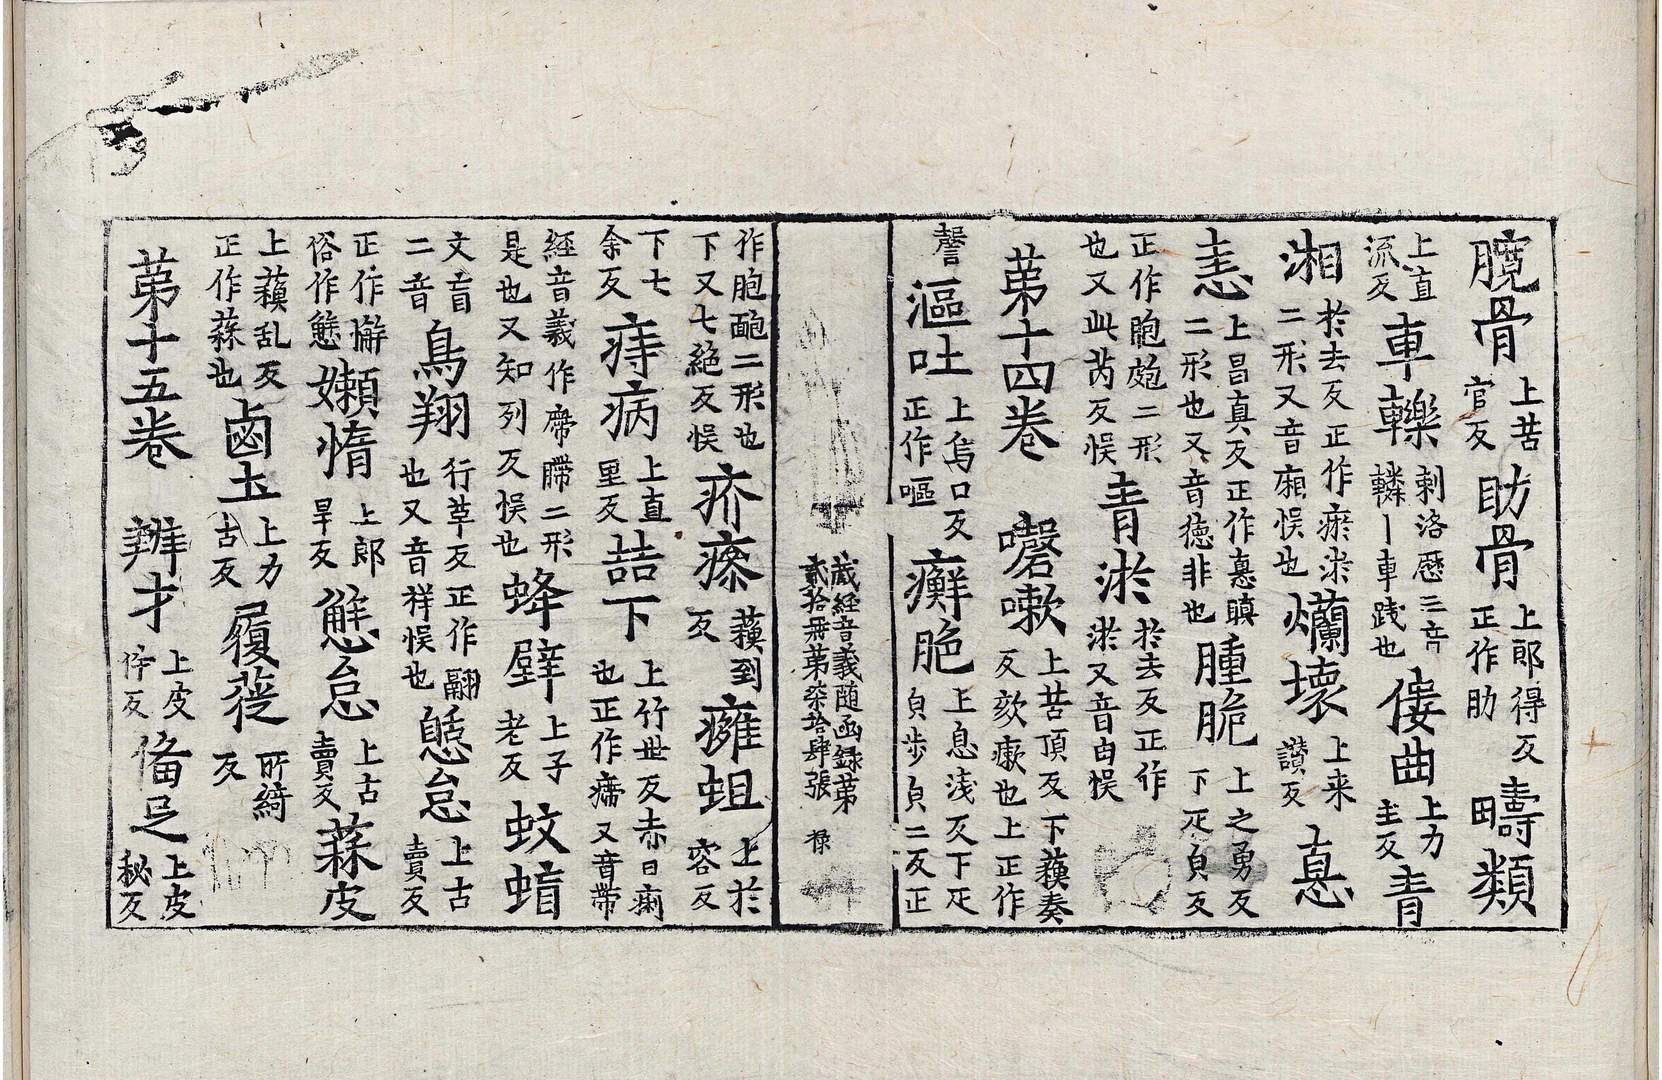 臗骨上苦官反肋骨上郎得反正作肋疇類
上直流反車轢剌洛歷三音轔丨車践也僂曲上力主反青
湘於去反正作瘀淤二形又音廂悮也爛壞上来讃反惪
恚上昌真反正作惪瞋二形也又音徳非也腫脆上之勇反下疋貟反
正作皰皰二形也又此芮反悮青淤於去反正作淤又音由悮
苐十四卷 磬嗽上苦頂反下蘓奏反欬瘶也上正作
謦漚吐上烏口反正作嘔癬脃上息淺反下疋貟步貟二反正
藏經音義随函錄第貳拾冊第柒拾肆張 祿
作胞皰二形也下又七絶反悮疥瘵蘓到反癰蛆上於容反
下七余反痔病上直里反喆下上竹世反赤白痢也正作㿃又音帶
經音義作㿃䐭二形是也又知列反悮也蜂䗙上子老反蚊蝐
文盲二音鳥翔行草反正作翮也又音祥悮也慝怠上古賣反
正作懈俗作㦗嬾惰上郎旱反㦗怠上古賣反蒜皮
上蘓乱反正作蒜也鹵土上力古反履蓰所綺反
苐十五卷 辨才上皮件反俻足上皮秘反